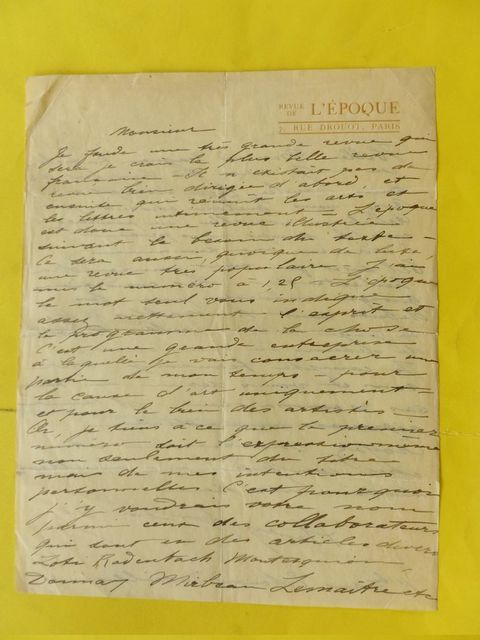 REVUE
DE L'ÉPOQUE
7, RUE DROUOT, PARIS
Monsieur
Je fonde une très grande revue qui
sera je crois la plus belle revue
française - Il n'existait pas de
revue bien dirigée d'abord et
ensuite qui réunit les arts et
les lettres intimement - L'époque
est donc une revue illustrée
suivant le besoin du texte -
Ce sera aussi, quoique de luxe,
une revue très populaire - J'ai
mis le numéro à 1,25 - L'époque
le mot seul vous indique
assez nettement l'esprit et
le Programme de la chose
C'est une grande entreprise
à laquelle je vais consacrer une
partie de mon temps - pour
la cause d'art uniquement
et pour le bien des artistes -
Or je tiens à ce que le premier
numéro soit l'expression même
non seulement du titre
mais de mes intentions
personnelles C'est pourquoi
j'y voudrais votre nom
parmi ceux des collaborateurs
qui sont en des articles divers
Rodenbach Montesquiou
Donnay Mirbeau Lemaitre etc